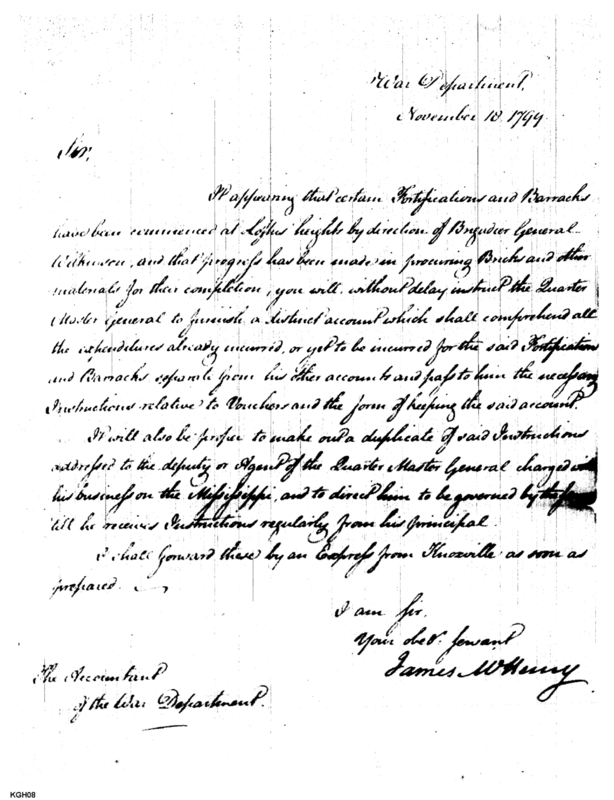 War Department,
November 18. 1799.
Sir,
It appearing that certain Fortifications and Barracks
have been commenced at Loftus' heights by direction of Brigadier General
Wilkinson, and that progress has been made in procuring Bricks and other
materials for their completion, you will without delay instruct the Quarter
Master General to furnish a distinct account which shall comprehend all
the expenditures already incurred, or yet to be incurred for the said Fortification
and Barracks separate from his other accounts and pass to him the necessary
Instructions relative to Vouchers and the form of keeping the said account.
It will also be proper to make out a duplicate of said Instructions
addressed to the deputy or Agent of the Quarter Master General charged with
his business on the Mississippi, and to direct him to be governed by the same
till he receives Instructions regularly from his principal.
I shall forward these by an Express from Knoxville as soon as
prepared.
I am Sir,
Your obet. Servant
James McHenry
The Accountant
of the War Department.
KGH08